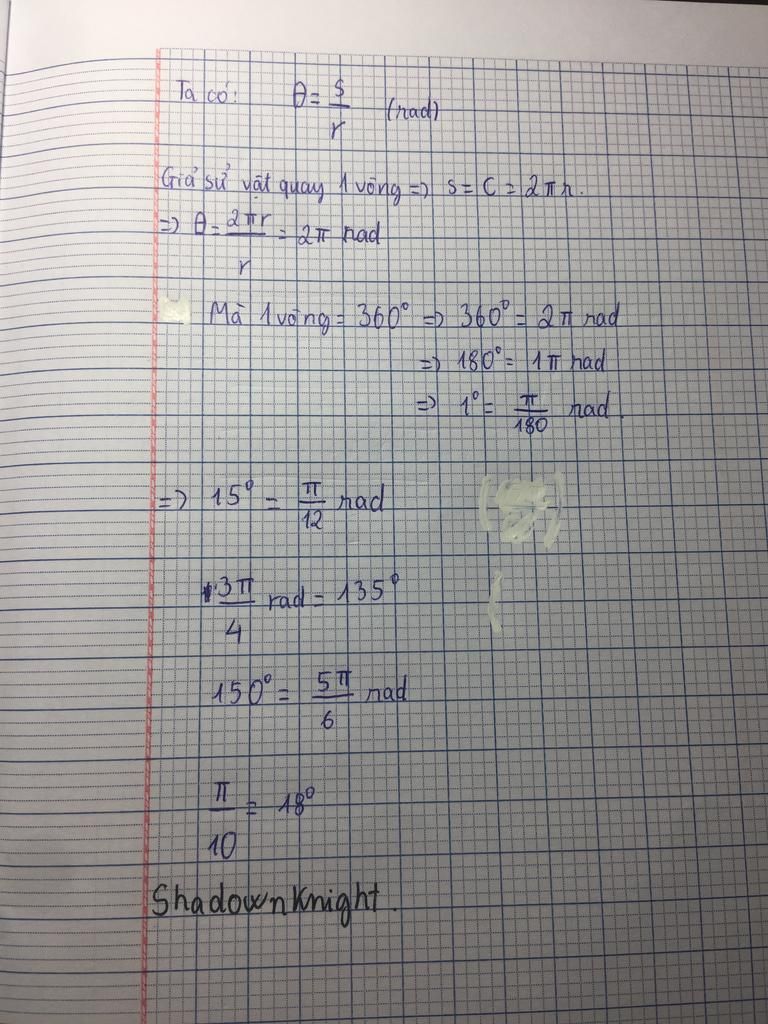 Ta có: θ = s/r (rad)
Giả sử vật quay 1 vòng => s = C = 2πr.
=> θ = 2πr/r = 2π rad
Mà 1 vòng = 360° => 360° = 2π rad
=> 180° = 1π rad
=> 1° = π/180 rad.
=> 15° = π/12 rad
3π/4 rad = 135°
150° = 5π/6 rad
π/10 = 18°
ShadownKnight.